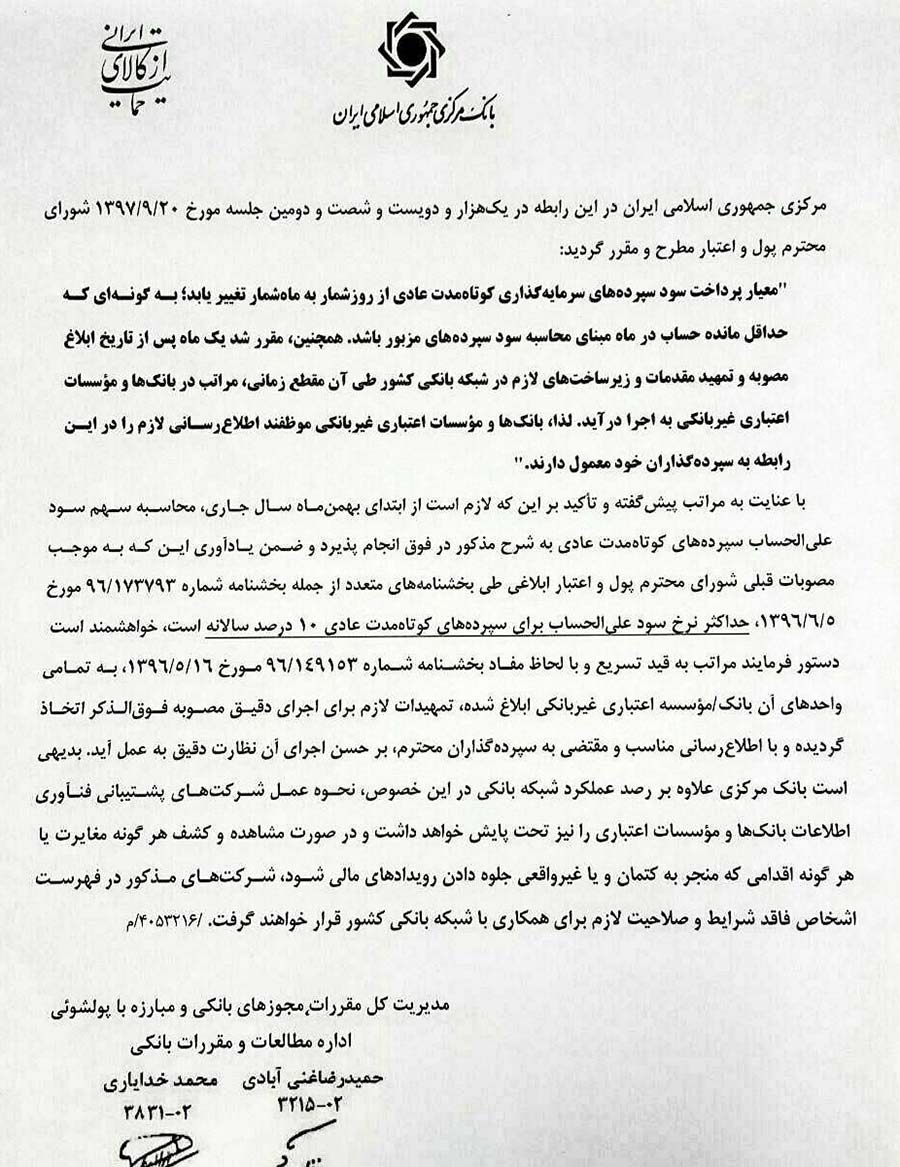 حمایت از کالای ایرانی
بانک مرکزی جمهوری اسلامی ایران
مرکزی جمهوری اسلامی ایران در این رابطه در یک‌هزار و دویست و شصت و دومین جلسه مورخ ۱۳۹۷/۹/۲۰ شورای
محترم پول و اعتبار مطرح و مقرر گردید:
"معیار پرداخت سود سپرده‌های سرمایه‌گذاری کوتاه‌مدت عادی از روزشمار به ماه‌شمار تغییر یابد؛ به گونه‌ای که
حداقل مانده حساب در ماه مبنای محاسبه سود سپرده‌های مزبور باشد. همچنین، مقرر شد یک ماه پس از تاریخ ابلاغ
مصوبه و تمهید مقدمات و زیرساخت‌های لازم در شبکه بانکی کشور طی آن مقطع زمانی، مراتب در بانک‌ها و مؤسسات
اعتباری غیربانکی به اجرا درآید. لذا، بانک‌ها و مؤسسات اعتباری غیربانکی موظفند اطلاع‌رسانی لازم را در این
رابطه به سپرده‌گذاران خود معمول دارند."
با عنایت به مراتب پیش‌گفته و تأکید بر این که لازم است از ابتدای بهمن‌ماه سال جاری، محاسبه سهم سود
علی‌الحساب سپرده‌های کوتاه‌مدت عادی به شرح مذکور در فوق انجام پذیرد و ضمن یادآوری این که به موجب
مصوبات قبلی شورای محترم پول و اعتبار ابلاغی طی بخشنامه‌های متعدد از جمله بخشنامه شماره ۹۶/۱۷۳۷۹۳ مورخ
۱۳۹۶/۶/۵، حداکثر نرخ سود علی‌الحساب برای سپرده‌های کوتاه‌مدت عادی ۱۰ درصد سالانه است، خواهشمند است
دستور فرمایند مراتب به قید تسریع و با لحاظ مفاد بخشنامه شماره ۹۶/۱۴۹۱۵۳ مورخ ۱۳۹۶/۵/۱۶، به تمامی
واحدهای آن بانک/مؤسسه اعتباری غیربانکی ابلاغ شده، تمهیدات لازم برای اجرای دقیق مصوبه فوق‌الذکر اتخاذ
گردیده و با اطلاع‌رسانی مناسب و مقتضی به سپرده‌گذاران محترم، بر حسن اجرای آن نظارت دقیق به عمل آید. بدیهی
است بانک مرکزی علاوه بر رصد عملکرد شبکه بانکی در این خصوص، نحوه عمل شرکت‌های پشتیبانی فنآوری
اطلاعات بانک‌ها و مؤسسات اعتباری را نیز تحت پایش خواهد داشت و در صورت مشاهده و کشف هر گونه مغایرت یا
هر گونه اقدامی که منجر به کتمان و یا غیرواقعی جلوه دادن رویدادهای مالی شود، شرکت‌های مذکور در فهرست
اشخاص فاقد شرایط و صلاحیت لازم برای همکاری با شبکه بانکی کشور قرار خواهند گرفت. /۴۰۵۳۲۱۶/م
مدیریت کل مقررات، مجوزهای بانکی و مبارزه با پولشوئی
اداره مطالعات و مقررات بانکی
حمیدرضاغنی آبادی محمد خدایاری
۳۲۱۵-۰۲ ۳۸۳۱-۰۲